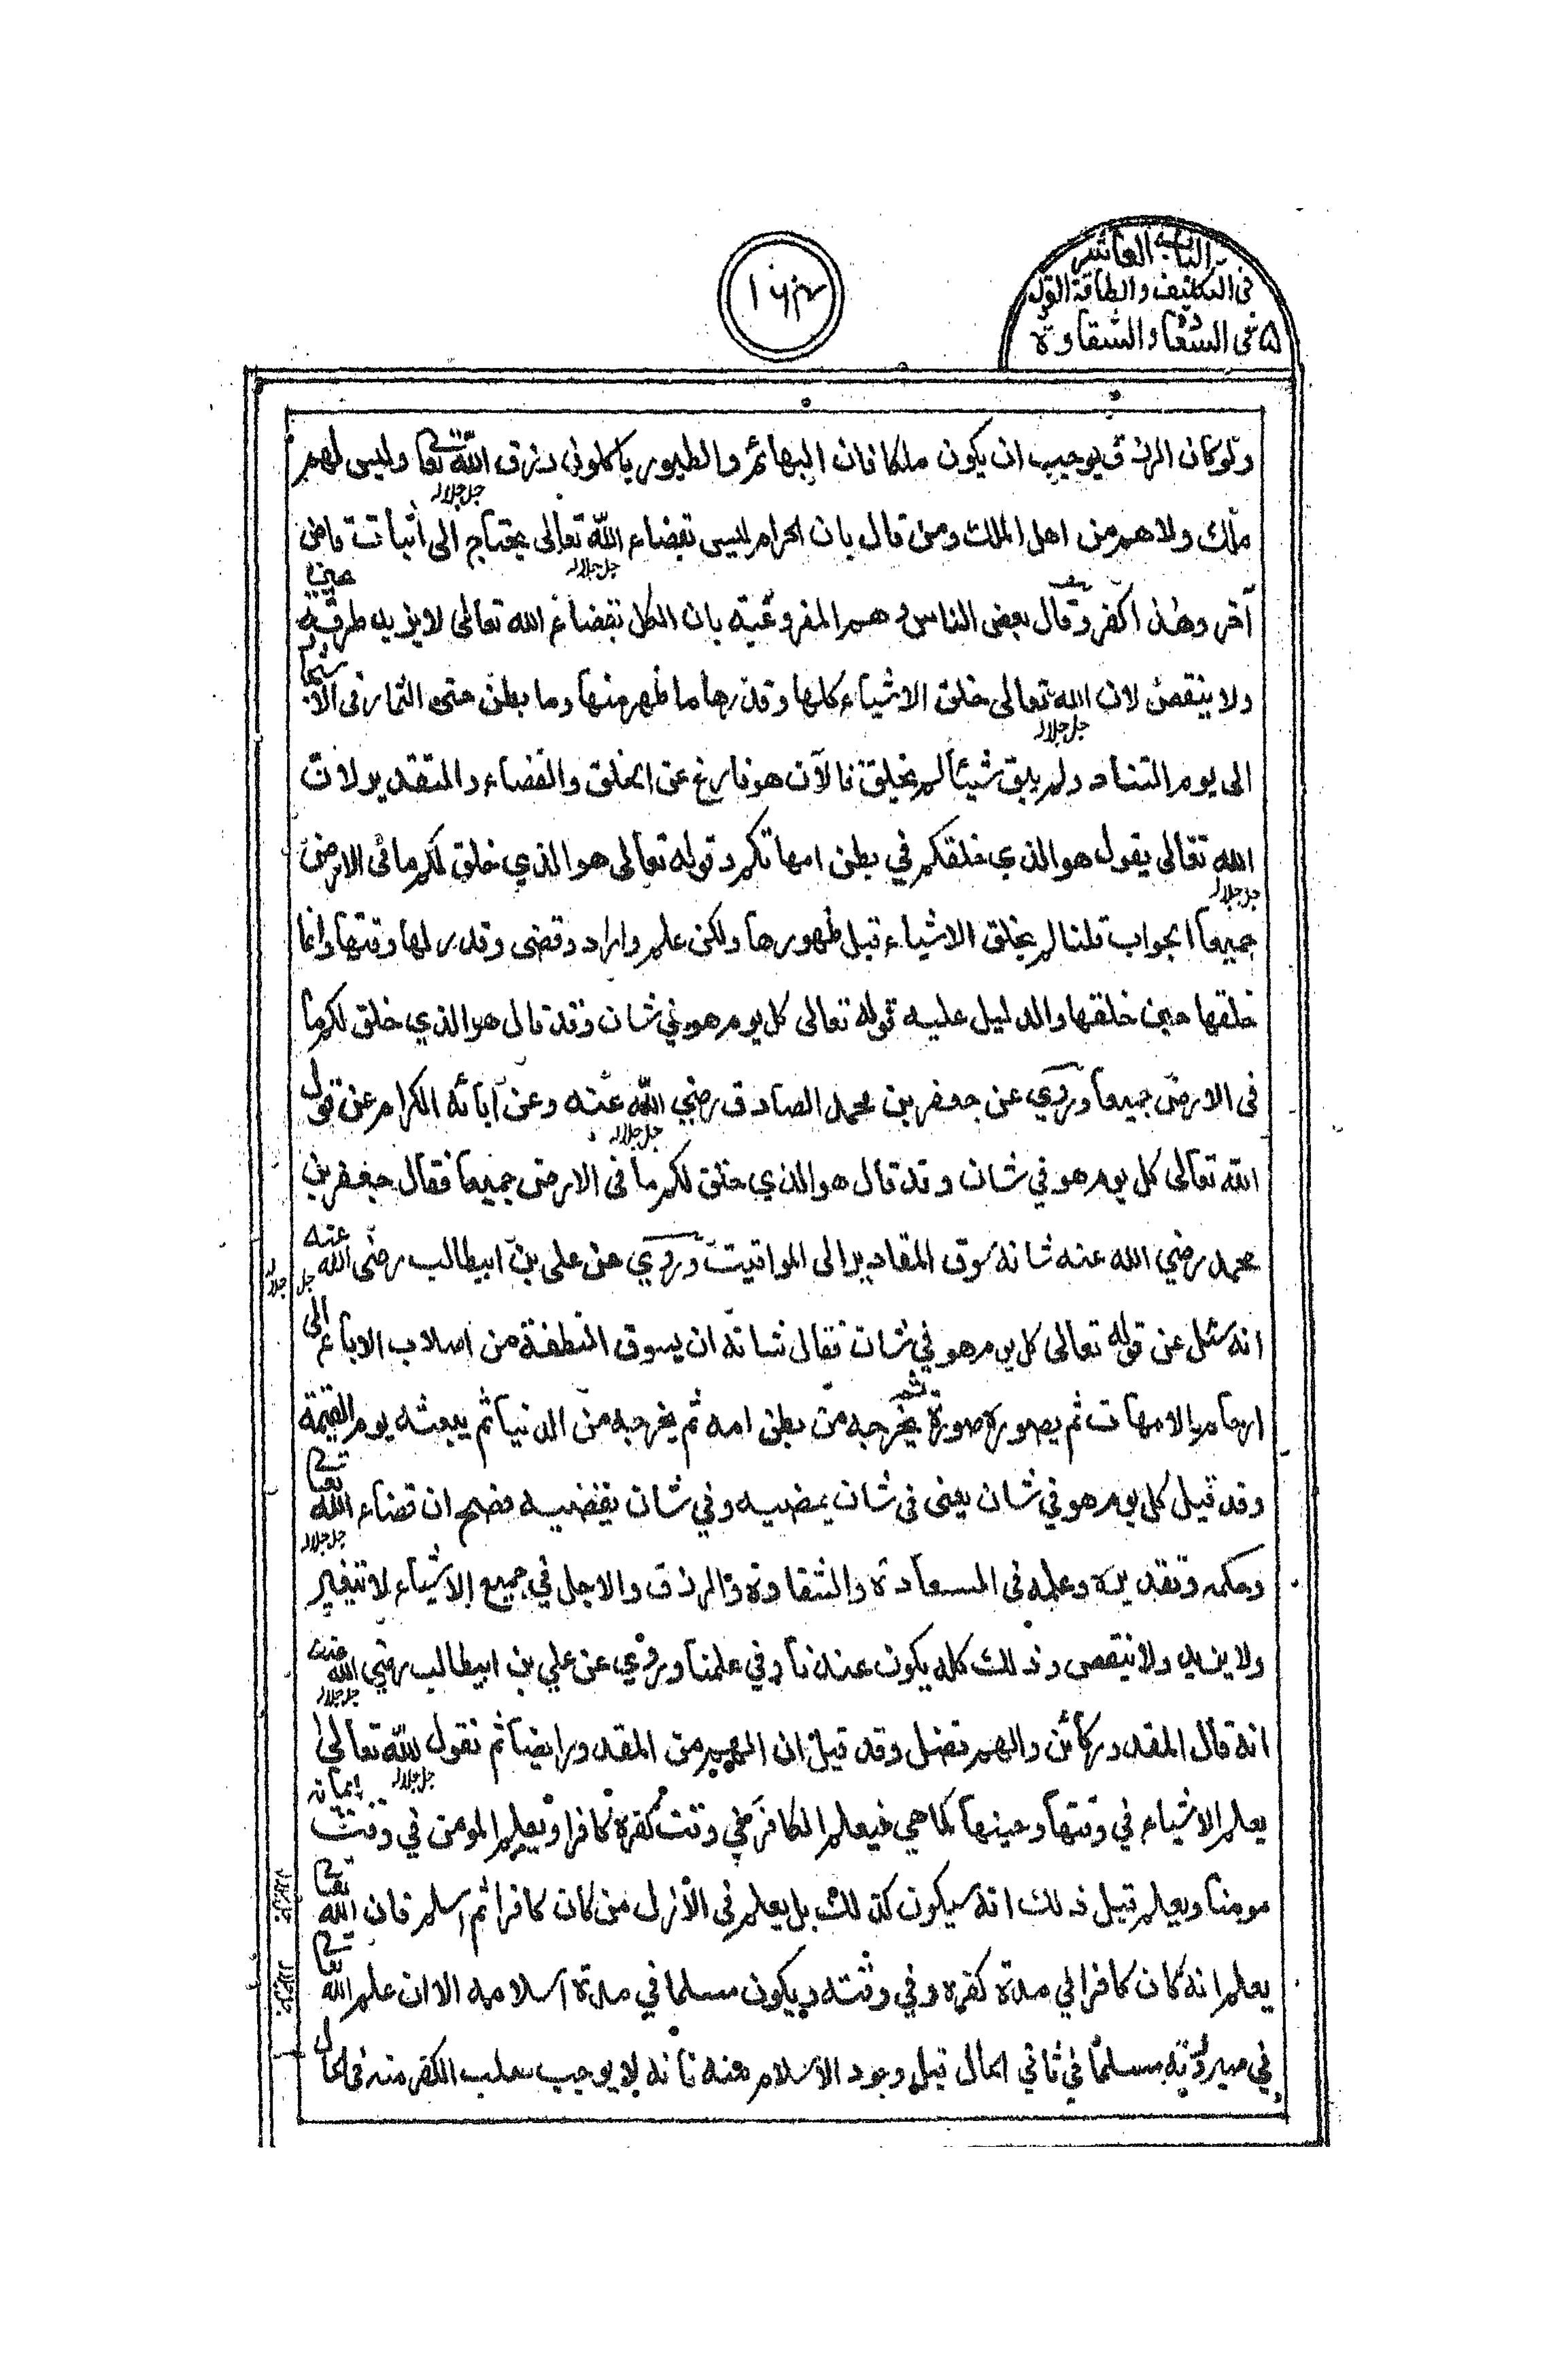 الباب العاشر
في التكليف والطاقة القول
في السعا دة والشقاوة
١٦٣
ولو كان الرزق يوجب ان يكون ملكا فان البهائم والطيور ياكلون رزق الله تعالى وليس لهم
جل جلاله
ملك ولا هم من اهل الملك ومن قال بان الحرام ليس بقضاء الله تعالى يحتاج الى اثبات قاض
جل جلاله
آخر وهذا كفر وقال بعض الناس وهم المفروغية بان الكل بقضاء الله تعالى لا يزيد طرفة عين
ولا ينقص لان الله تعالى خلق الاشياء كلها وقدرها ما ظهر منها وما بطن حتى الثمار في الاشجار
جل جلاله
الى يوم التناد ولم يبق شيئا لم يخلق فالآن هو فارغ عن الخلق والقضاء والتقدير لان
الله تعالى يقول هو الذي خلقكم في بطن امهاتكم وقوله تعالى هو الذي خلق لكم ما في الارض
جل جلاله
جميعا الجواب قلنا لم يخلق الاشياء قبل ظهورها ولكن علم واراد وقضى وقدر لها وقتها وانما
خلقها حين خلقها والدليل عليه قوله تعالى كل يوم هو في شان وقد قال هو الذي خلق لكم ما
في الارض جميعا وروي عن جعفر بن محمد الصادق رضي الله عنه وعن آبائه الكرام عن قول
جل جلاله
الله تعالى كل يوم هو في شان وقد قال هو الذي خلق لكم ما في الارض جميعا فقال جعفر بن
محمد رضي الله عنه شانه سوق المقادير الى المواقيت وروي عن علي بن ابيطالب رضى الله عنه
جل جلاله
انه سئل عن قوله تعالى كل يوم هو في شان فقال شانه ان يسوق النطفة من اصلاب الاباء الى
ارحام الامهات ثم يصوره صورة ثم يخرجه من بطن امه ثم يخرجه من الدنيا ثم يبعثه يوم القيمة
وقد قيل كل يوم هو في شان يعنى في شان يمضيه وفي شان يقضيه فصح ان قضاء الله تعالى
جل جلاله
وحكمه وتقديره وعلمه في السعادة والشقاوة والرزق والاجل في جميع الاشياء لا تتغير
ولا يزيد ولا ينتقص وذلك كله يكون عندنا وفي علمنا وروي عن علي بن ابيطالب رضي الله عنه
جل جلاله
انه قال المقدور كائن والهم فضل وقد قيل ان الهم من المقدور ايضا ثم نقول لله تعالى
جل جلاله
يعلم الاشياء في وقتها وحينها كما هي فيعلم الكافر في وقت كفره كافرا ويعلم المومن في وقت ايمانه
مومنا ويعلم قبل ذلك انه سيكون كذلك بل يعلم في الازل من كان كافرا ثم اسلم فان الله تعالى
يعلم انه كان كافرا لي مدة كفره وفي وقته ويكون مسلما في مدة اسلامه الا ان علم الله تعالى
في صيرورته مسلما في ثاني الحال قبل وجود الاسلام منه فانه لا يوجب سلب الكفر منه في الحال